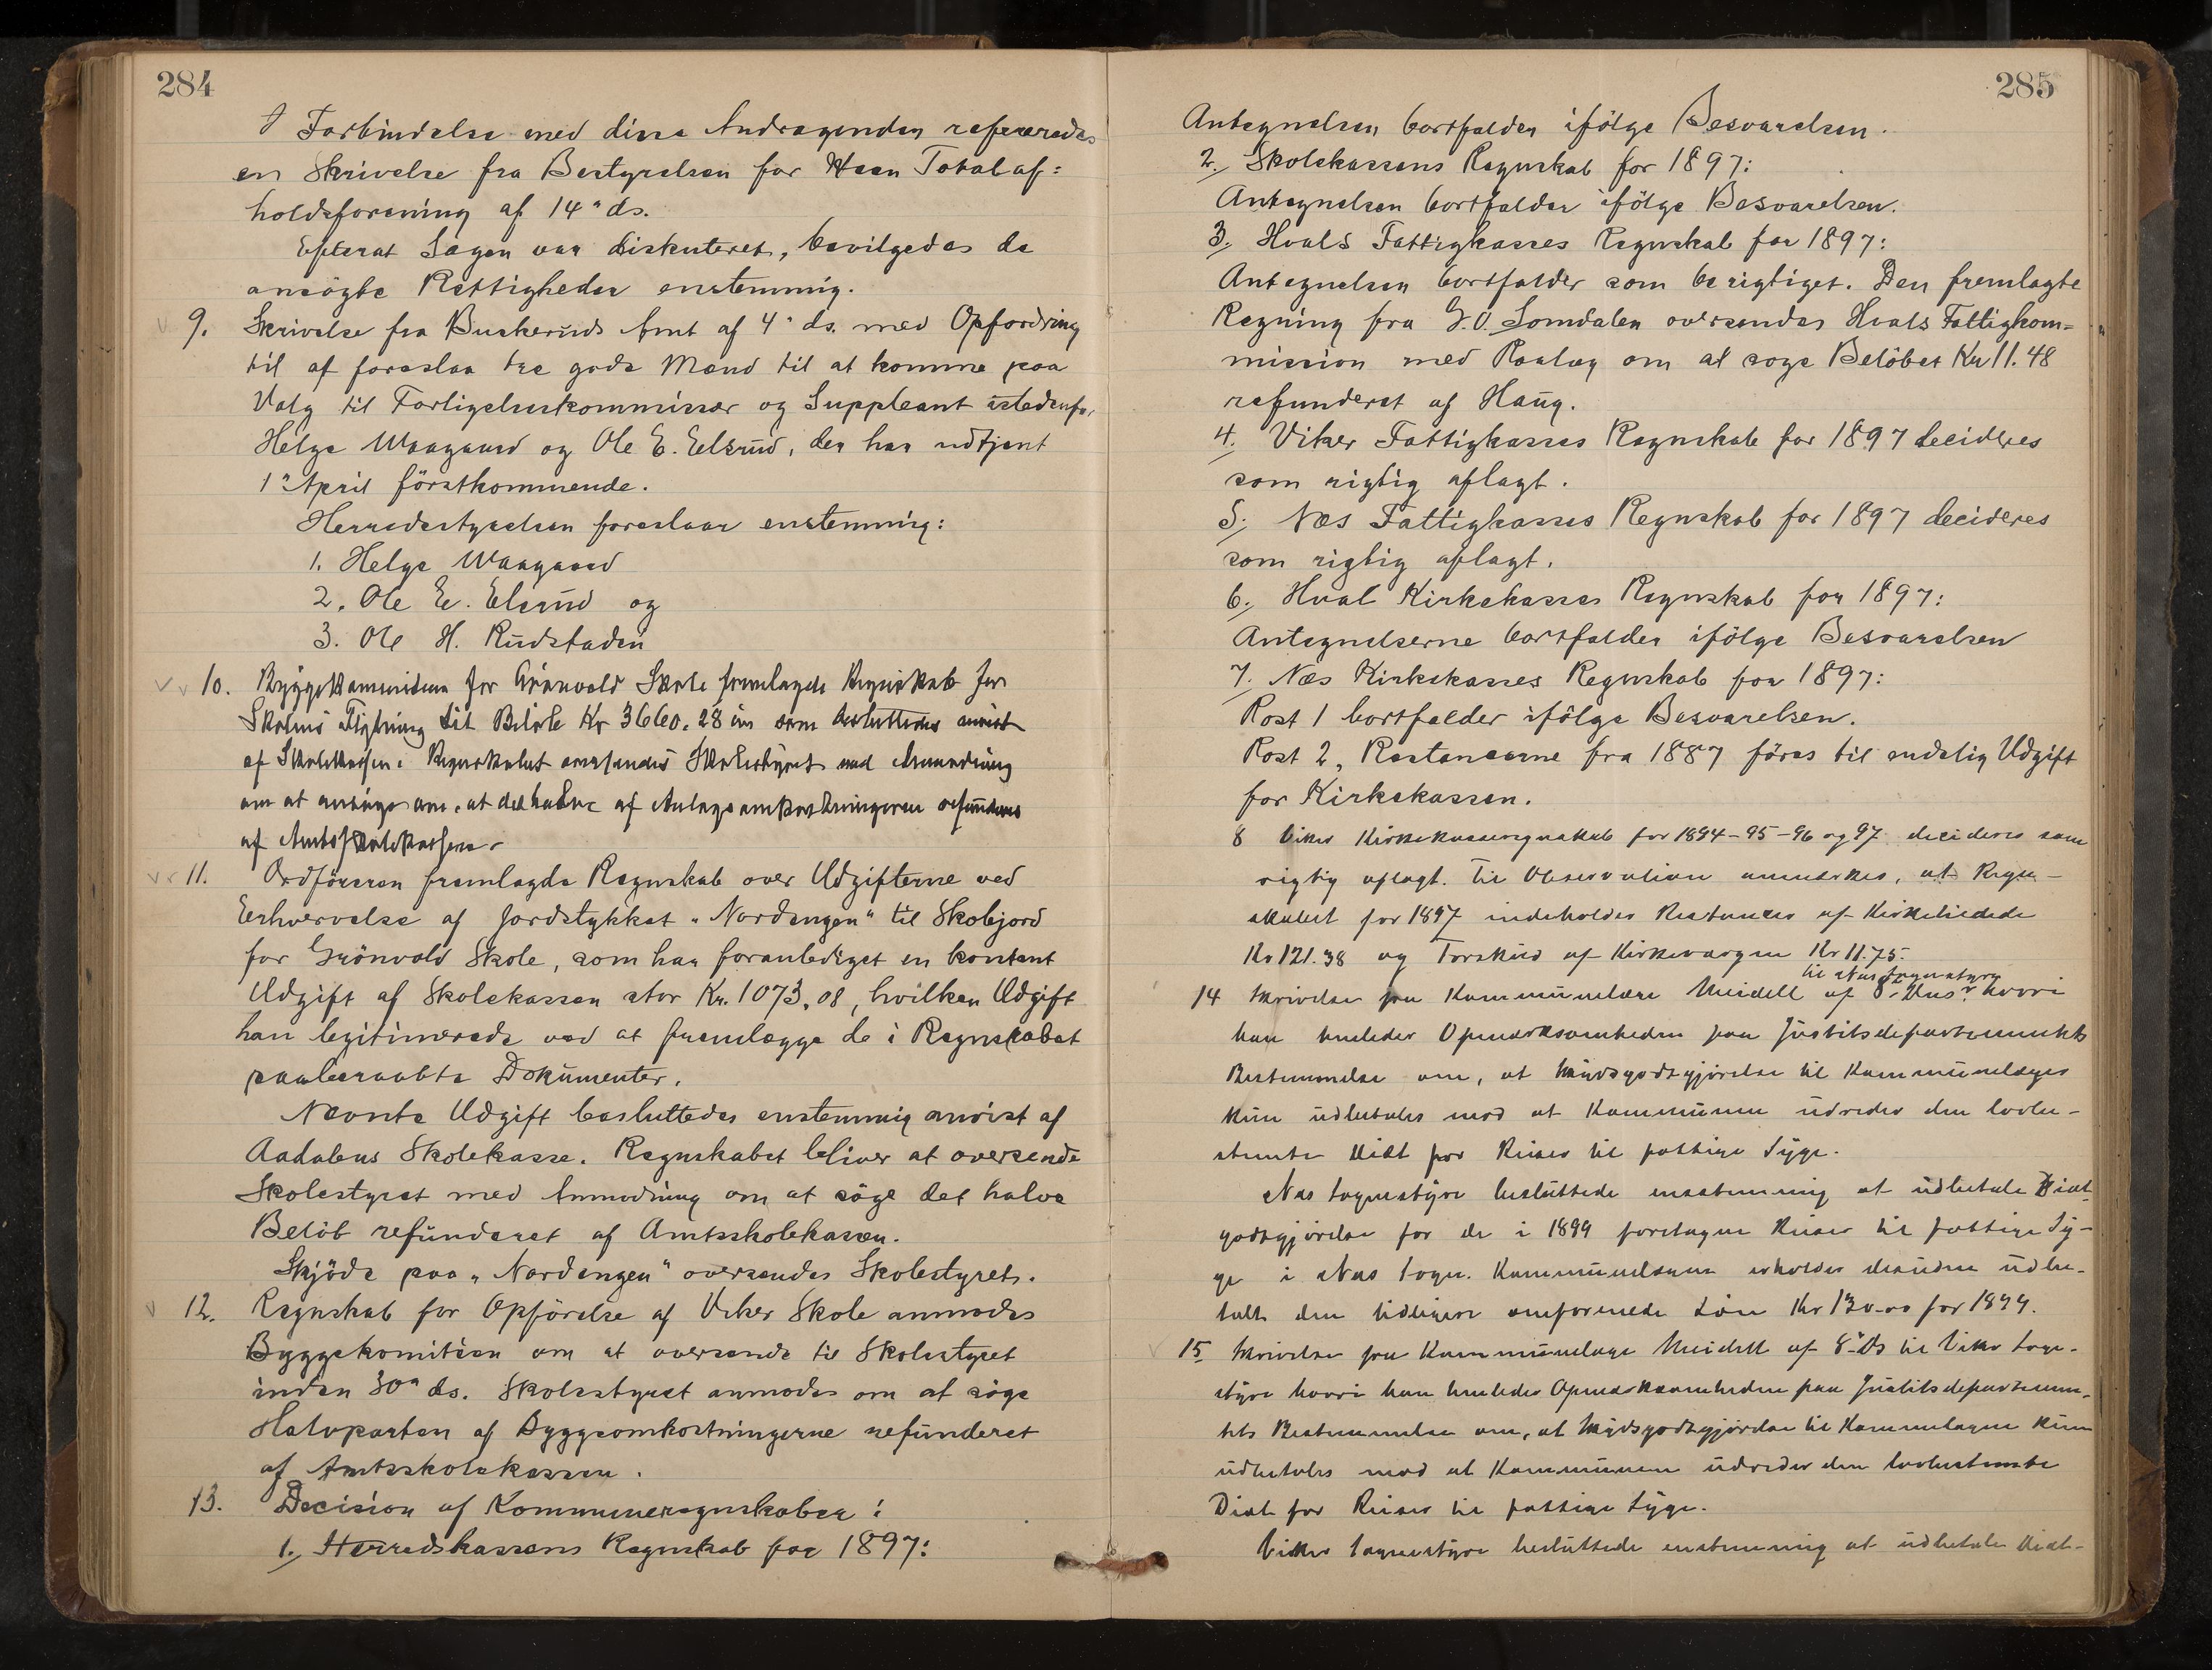 284
I Forbindelse med disse Andragender refereredes
en Skrivelse fra Bestyrelsen for Haen Totalaf=
holdsforening af 14" ds.
Efterat Sagen var diskuteret, bevilgedes de
ansögte Rettigheder enstemmig.
9. Skrivelse fra Buskeruds Amt af 4' ds. med Opfordring
til at foreslaa tre gode Mænd til at komme paa
Valg til Forligelseskommissær og Suppleant istedenfor
Helge Waagaard og Ole E. Elsrud, der har udtjent
1" April förstkommende.
Herredsstyrelsen foreslaar enstemmig:
1. Helge Waagaard
2. Ole E. Elsrud og
3. Ole H. Rudstaden
10. Byggekomiteen for Grönvold Skole fremlagde Regnskab for
Skolens Flytning til Belöb Kr 3660.28 som besluttedes anvist
af Skolekassen. Regnskabet oversendes Skolestyret med Anmodning
om at ansöge om, at det halve af Anlægsomkostningerne refunderes
af Amtsskolekassen.
11. Ordföreren fremlagde Regnskab over Udgifterne ved
Erhvervelse af Jordstykket "Nordengen" til Skolejord
for Grönvold Skole, som har foranlediget en kontant
Udgift af Skolekassen stor Kr. 1073,08, hvilken Udgift
han legitimerede ved at fremlægge de i Regnskabet
paaberaabte Dokumenter.
Nævnte Udgift besluttedes enstemmig anvist af
Aadalens Skolekasse. Regnskabet bliver at oversende
Skolestyret med Anmodning om at söge det halve
Belöb refunderet af Amtsskolekassen.
Skjöde paa "Nordengen" oversendes Skolestyret.
12. Regnskab for Opförelse af Viker Skole anmodes
Byggekomiteen om at oversende til Skolestyret
inden 30" ds. Skolestyret anmodes om at söge
Halvparten af Byggeomkostningerne refunderet
af Amtsskolekassen.
13. Decision af Kommuneregnskaber:
1. Herredskassens Regnskab for 1897:
285
Antegnelsen bortfalder ifölge Besvarelsen.
2. Skolekassens Regnskab for 1897:
Antegnelsen bortfalder ifölge Besvarelsen.
3. Hvals Fattigkasses Regnskab for 1897:
Antegnelsen bortfalder som berigtiget. Den fremlagte
Regning fra G. O. Somdalen oversendes Hvals Fattigkom=
mission med Paalæg om at söge Belöbet Kr 11.48
refunderet af Haug.
4. Viker Fattigkasses Regnskab for 1897 decideres
som rigtig aflagt.
5. Næs Fattigkasses Regnskab for 1897 decideres
som rigtig aflagt.
6. Hval Kirkekasses Regnskab for 1897:
Antegnelserne bortfalder ifölge Besvarelsen
7. Næs Kirkekasses Regnskab for 1897:
Post 1 bortfalder ifölge Besvarelsen.
Post 2, Restancerne fra 1887 föres til endelig Udgift
for Kirkekassen.
8 Viker Kirkekasseregnskab for 1894-95-96 og 97 decideres som
rigtig aflagt. Til Observation anmærkes, at Regn-
skabet for 1897 indeholder Restancer af Kirketiende
Kr 121.38 og Forskud af Kirkeværgen Kr 11.75.
til Næs Sognestyre
14 Skrivelse fra Kommunelæge Meidell af 8. ds hvori
han henleder Opmærksomheden paa Justitsdepartementets
Bestemmelse om, at Skydsgodtgjörelse til Kommunelæger
kun udbetales mod at Kommunen udreder den lovbe-
stemte Diæt for Reiser til fattige Syge.
Næs Sognestyre besluttede enstemmig at udbetale Diæt
godtgjörelse for de i 1899 foretagne Reiser til fattige Sy-
ge i Næs Sogn. Kommunelægen erholder desuden udbe-
talt den tidligere omforenede Lön Kr 130.00 for 1899.
15 Skrivelse fra Kommunelæge Meidell af 8. ds til Viker Sogne-
styre hvori han henleder Opmærksomheden paa Justitsdepartemen-
tets Bestemmelse om, at Skydsgodtgjörelse til Kommunelægen kun
udbetales mod at Kommunen udreder den lovbestemte
Diæt for Reiser til fattige Syge.
Viker Sognestyre besluttede enstemmig at udbetale Diæt-